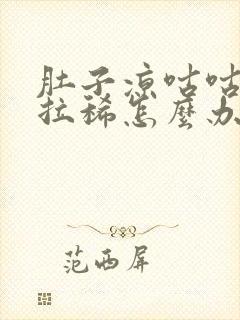 肚子凉咕咕
拉稀怎麼办
范西屏